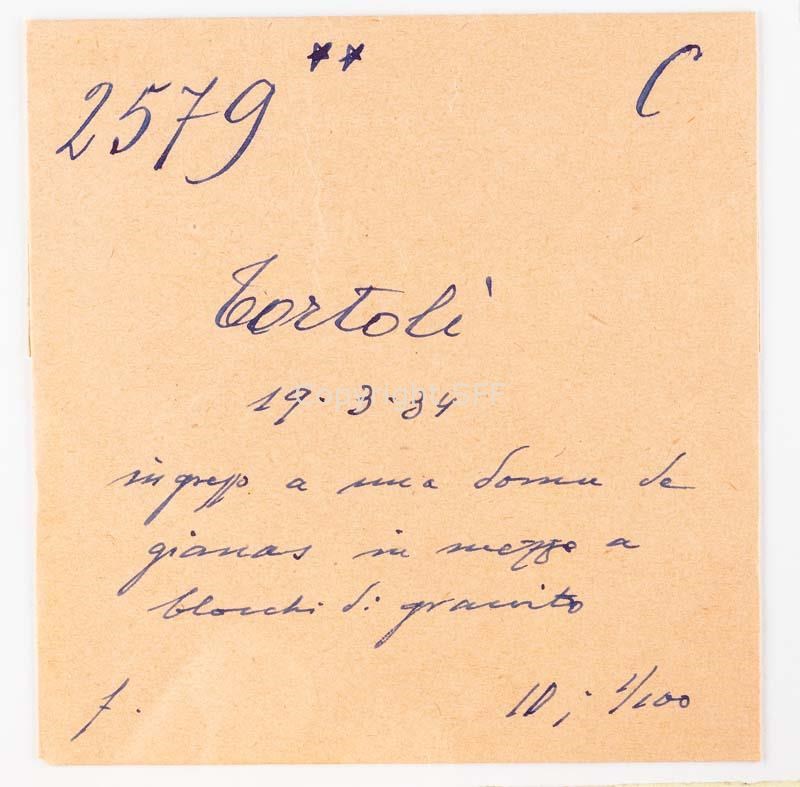 2579 ** C
Tortolì
19.3.34
ingresso a una domu de
gianas in mezzo a
blocchi di granito
f. 10; 1/100